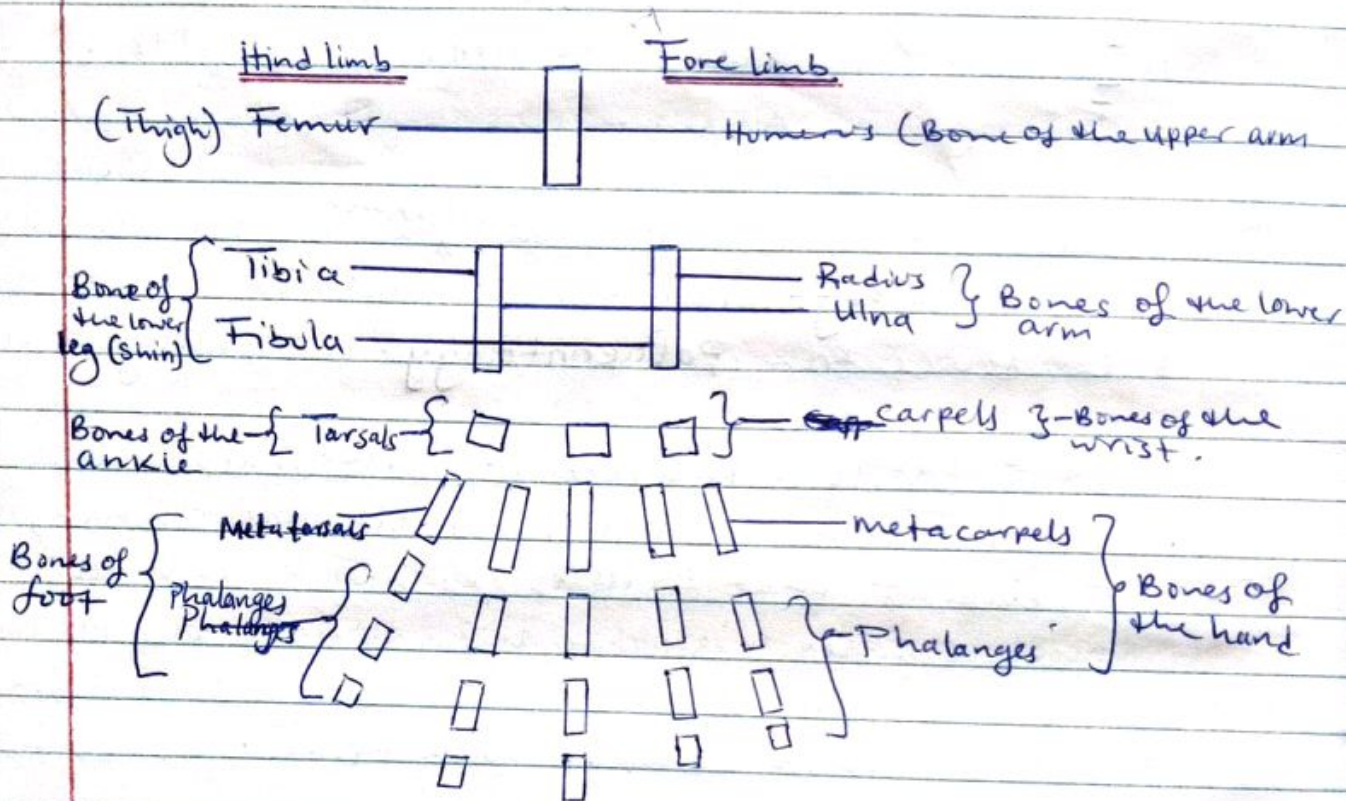 Hind limb
Fore limb
(Thigh) Femur
Humerus (Bone of the upper arm
Bone of
the lower
leg (Shin)
Tibia
Fibula
Radius
Ulna
Bones of the lower
arm
Bones of the
ankle
Tarsals
carpels
Bones of the
wrist.
Metatarsals
metacarpels
Bones of
foot
Phalanges
Phalanges
Phalanges
Bones of
the hand